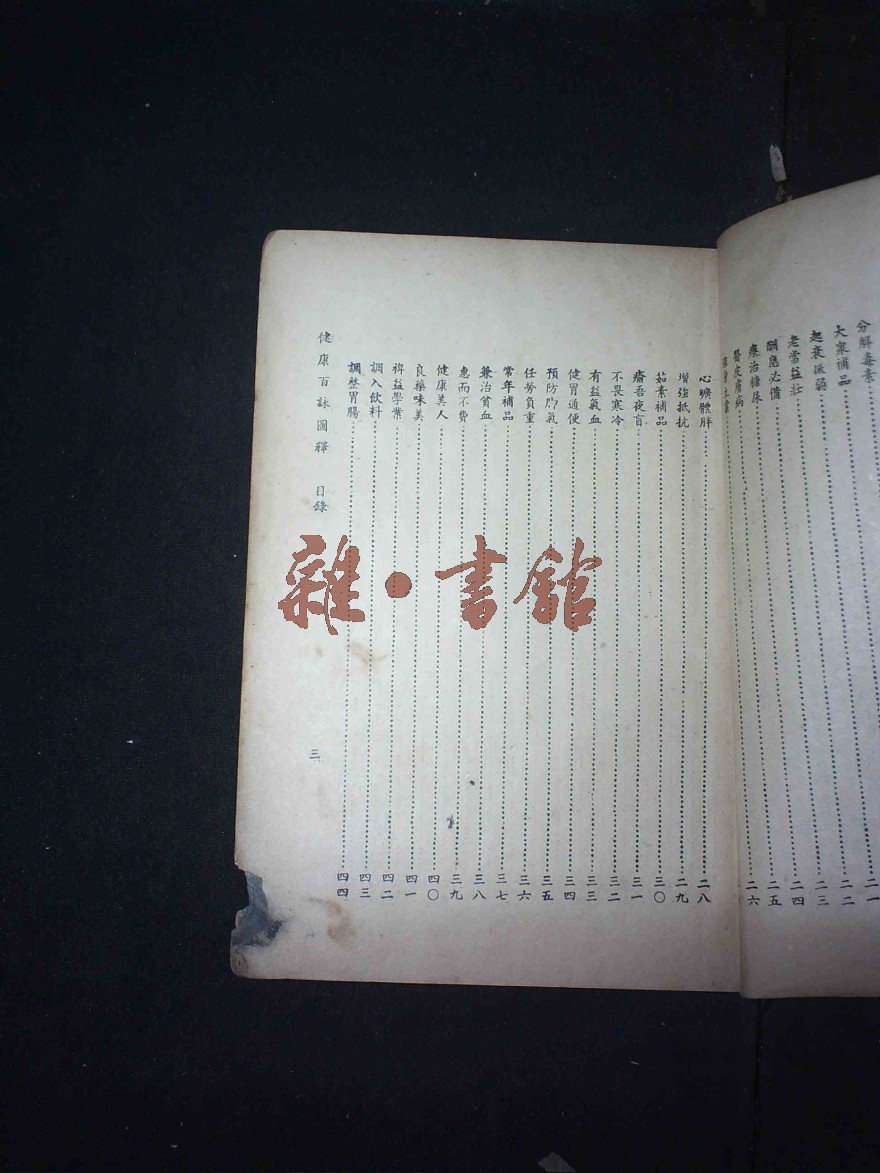 分解毒素……二一
大衆補品……二二
起衰徵藥……二三
老當益壯……二四
酬應必備……二五
療治糖尿……二六
醫皮膚病
心曠體胖……二八
增強抵抗……二九
茹素補品……三〇
瘉吾夜盲……三一
不畏寒冷……三二
有益氣血……三三
健胃通便……三四
預防脚氣……三五
任勞負重……三六
常年補品……三七
兼治貧血……三八
惠而不費……三九
健康美人……四〇
良藥味美……四一
裨益學業……四二
調入飲料……四三
調整胃腸……四四
健康百詠圖釋 目錄
三
雜•書館